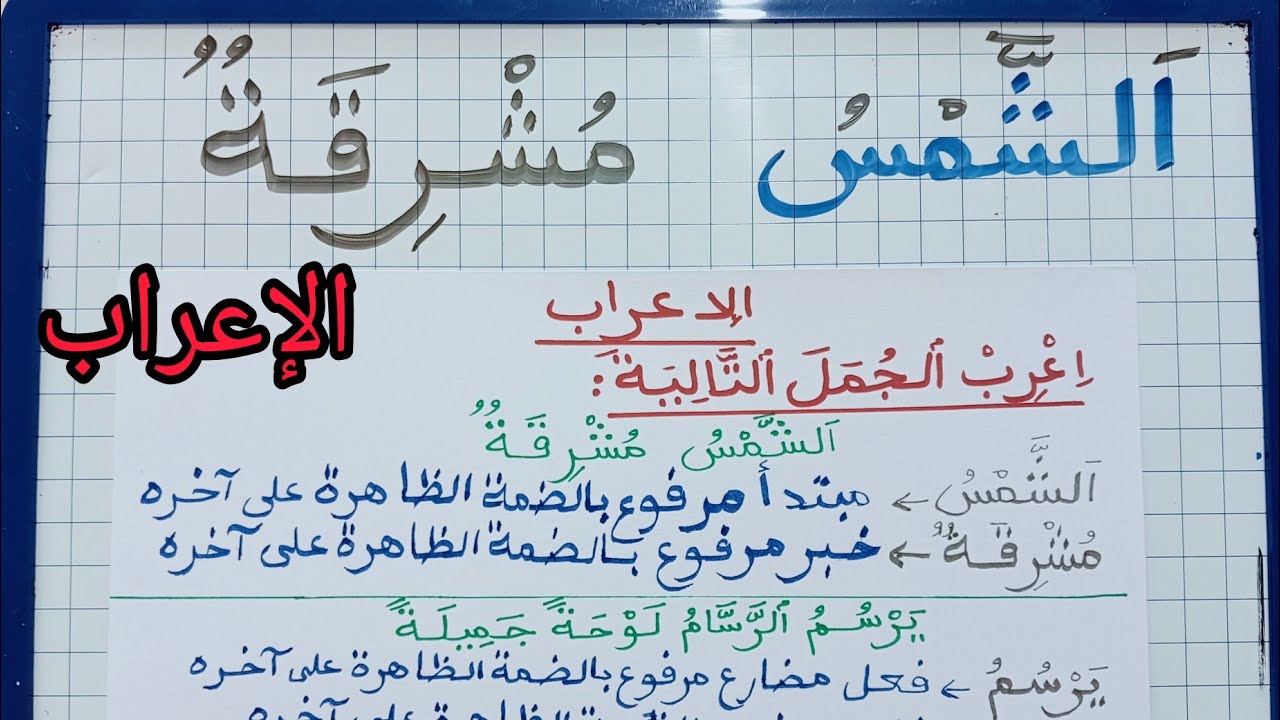 اَلشَّمْسُ مُشْرِقَةٌ
الإعراب
الإعراب
اِعْرِبْ ٱلْجُمَلَ ٱلتَّالِيَةَ:
اَلشَّمْسُ مُشْرِقَةٌ
اَلشَّمْسُ ← مبتدأ مرفوع بالضمة الظاهرة على آخره
مُشْرِقَةٌ ← خبر مرفوع بالضمة الظاهرة على آخره
يَرْسُمُ ٱلرَّسَّامُ لَوْحَةً جَمِيلَةً
يَرْسُمُ ← فعل مضارع مرفوع بالضمة الظاهرة على آخره
الظاهرة على آخره